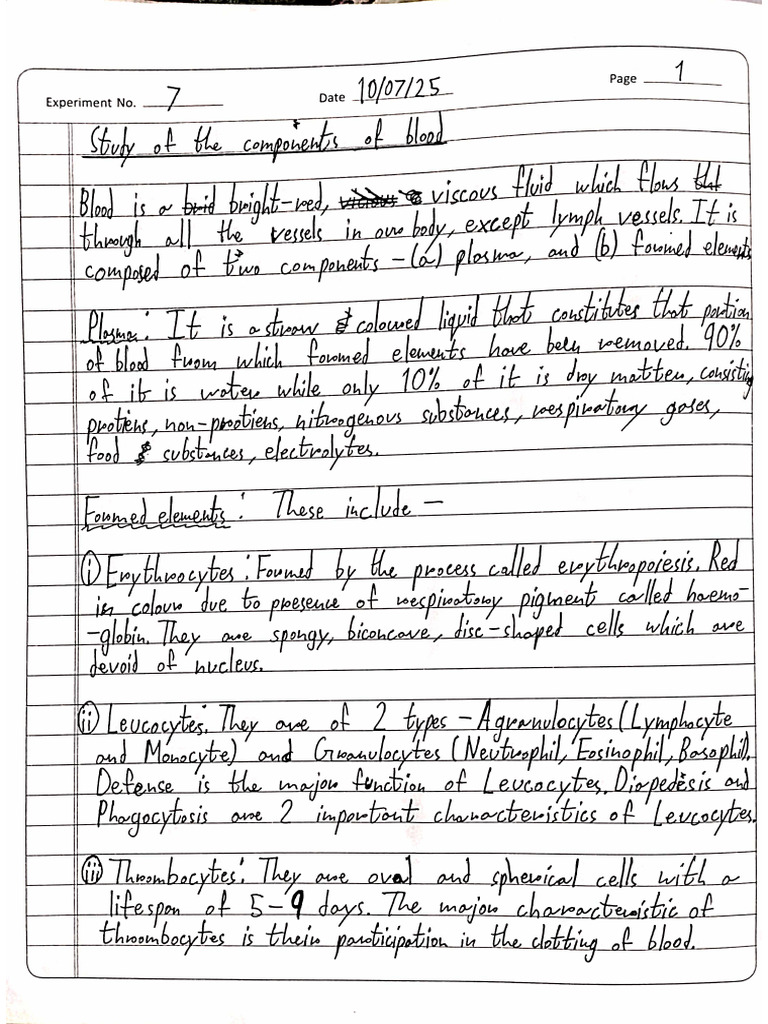 Experiment No. 7 Date 10/07/25 Page 1
Study of the components of blood
Blood is a bright-red, viscous fluid which flows
through all the vessels in our body, except lymph vessels. It is
composed of two components - (a) plasma, and (b) formed elements
Plasma: It is a straw coloured liquid that constitutes that portion
of blood from which formed elements have been removed. 90%
of it is water while only 10% of it is dry matter, consisting
protiens, non-protiens, nitrogenous substances, respiratory gases,
food substances, electrolytes.
Formed elements: These include -
(i) Erythrocytes: Formed by the process called erythropoiesis. Red
in colour due to presence of respiratory pigment called haemo-
-globin. They are spongy, biconcave, disc-shaped cells which are
devoid of nucleus.
(ii) Leucocytes: They are of 2 types - Agranulocytes (Lymphocyte
and Monocyte) and Granulocytes (Neutrophil, Eosinophil, Basophil).
Defense is the major function of Leucocytes. Diapedesis and
Phagocytosis are 2 important characteristics of Leucocytes.
(iii) Thrombocytes: They are oval and spherical cells with a
lifespan of 5-9 days. The major characteristic of
thrombocytes is their participation in the clotting of blood.